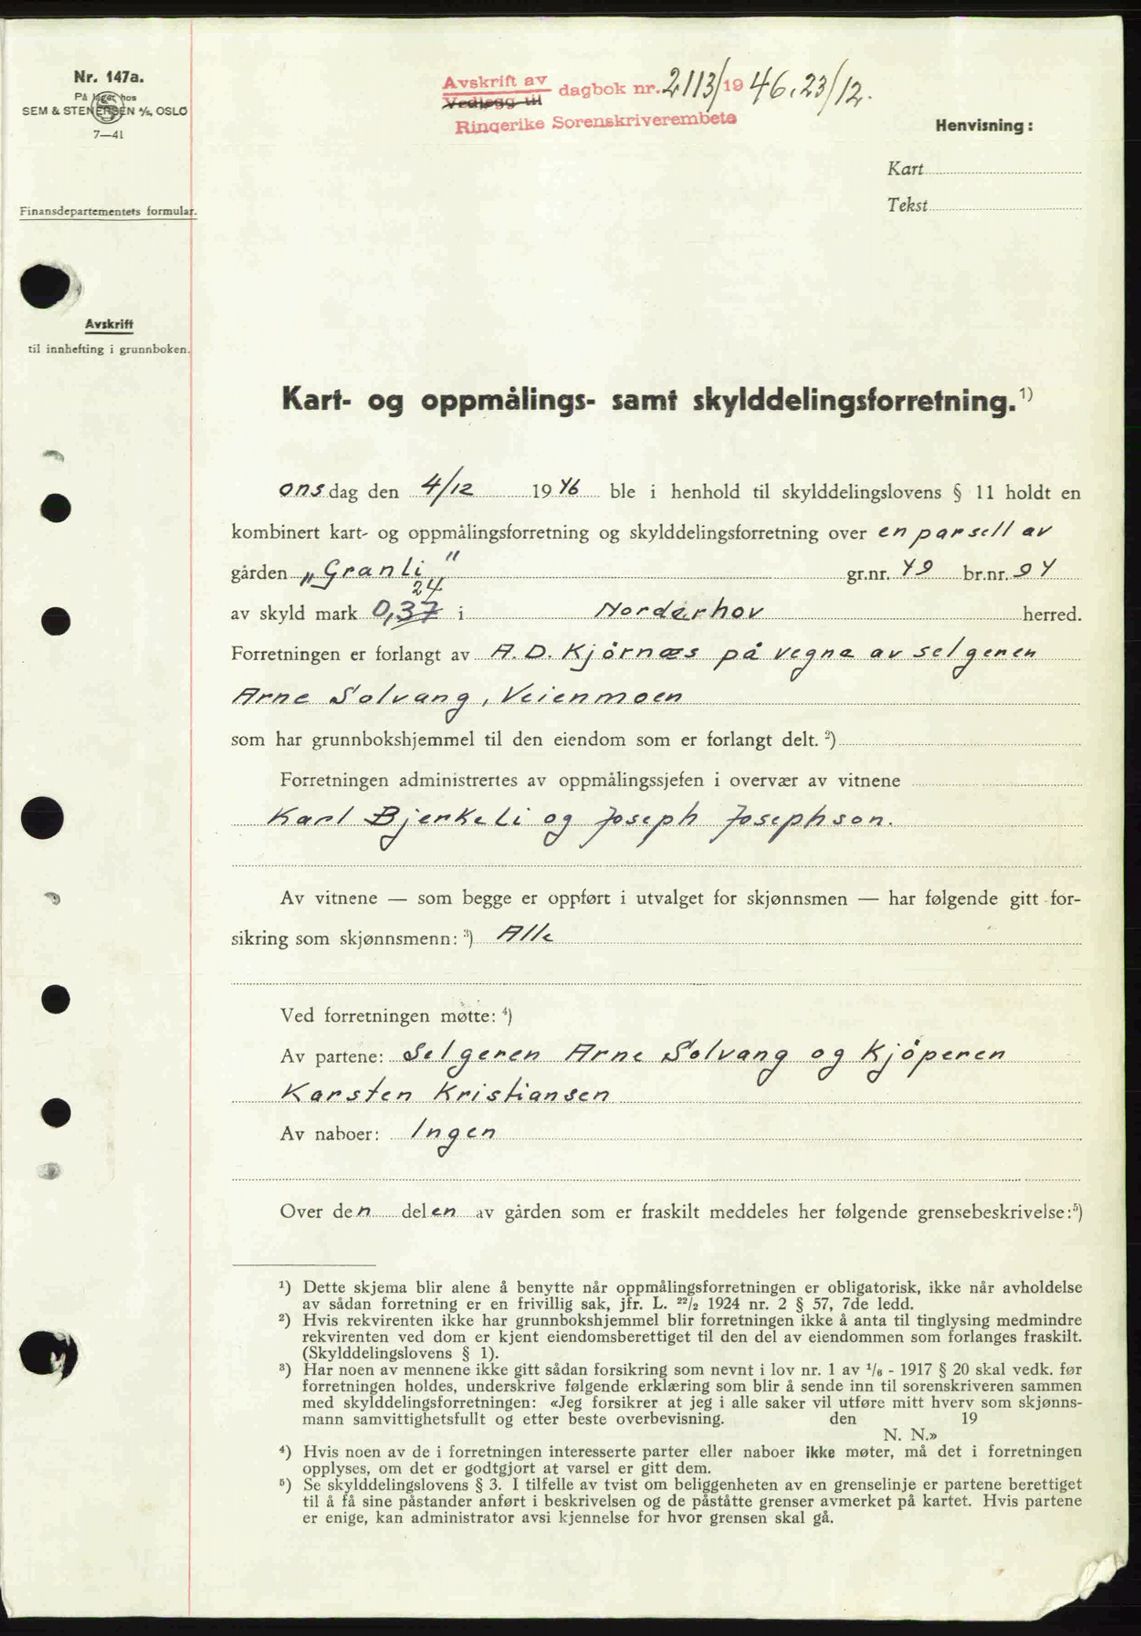 Nr. 147a.
På lager hos
SEM & STENERSEN A/S, OSLO
7—41
Finansdepartementets formular.
Avskrift
til innhefting i grunnboken.
Avskrift av
Vedlegg til
dagbok nr. 2113/1946, 23/12.
Ringerike Sorenskriverembete
Henvisning:
Kart
Tekst
Kart- og oppmålings- samt skylddelingsforretning.¹)
onsdag den 4/12 1946 ble i henhold til skylddelingslovens § 11 holdt en
kombinert kart- og oppmålingsforretning og skylddelingsforretning over en parsell av
gården „Granli" gr.nr. 49 br.nr. 94
24
av skyld mark 0,37 i Norderhov herred.
Forretningen er forlangt av A. D. Kjörnæs på vegne av selgeren
Arne Solvang, Veienmoen
som har grunnbokshjemmel til den eiendom som er forlangt delt. ²)
Forretningen administrertes av oppmålingssjefen i overvær av vitnene
Karl Bjerkeli og Joseph Josephson.
Av vitnene — som begge er oppført i utvalget for skjønnsmen — har følgende gitt for-
sikring som skjønnsmenn: ³) Alle
Ved forretningen møtte: ⁴)
Av partene: Selgeren Arne Solvang og Kjöperen
Karsten Kristiansen
Av naboer: Ingen
Over den delen av gården som er fraskilt meddeles her følgende grensebeskrivelse:⁵)
¹) Dette skjema blir alene å benytte når oppmålingsforretningen er obligatorisk, ikke når avholdelse
av sådan forretning er en frivillig sak, jfr. L. 22/2 1924 nr. 2 § 57, 7de ledd.
²) Hvis rekvirenten ikke har grunnbokshjemmel blir forretningen ikke å anta til tinglysing medmindre
rekvirenten ved dom er kjent eiendomsberettiget til den del av eiendommen som forlanges fraskilt.
(Skylddelingslovens § 1).
³) Har noen av mennene ikke gitt sådan forsikring som nevnt i lov nr. 1 av 1/6 - 1917 § 20 skal vedk. før
forretningen holdes, underskrive følgende erklæring som blir å sende inn til sorenskriveren sammen
med skylddelingsforretningen: «Jeg forsikrer at jeg i alle saker vil utføre mitt hverv som skjønns-
mann samvittighetsfullt og etter beste overbevisning. den 19
N. N.»
⁴) Hvis noen av de i forretningen interesserte parter eller naboer ikke møter, må det i forretningen
opplyses, om det er godtgjort at varsel er gitt dem.
⁵) Se skylddelingslovens § 3. I tilfelle av tvist om beliggenheten av en grenselinje er partene berettiget
til å få sine påstander anført i beskrivelsen og de påståtte grenser avmerket på kartet. Hvis partene
er enige, kan administrator avsi kjennelse for hvor grensen skal gå.